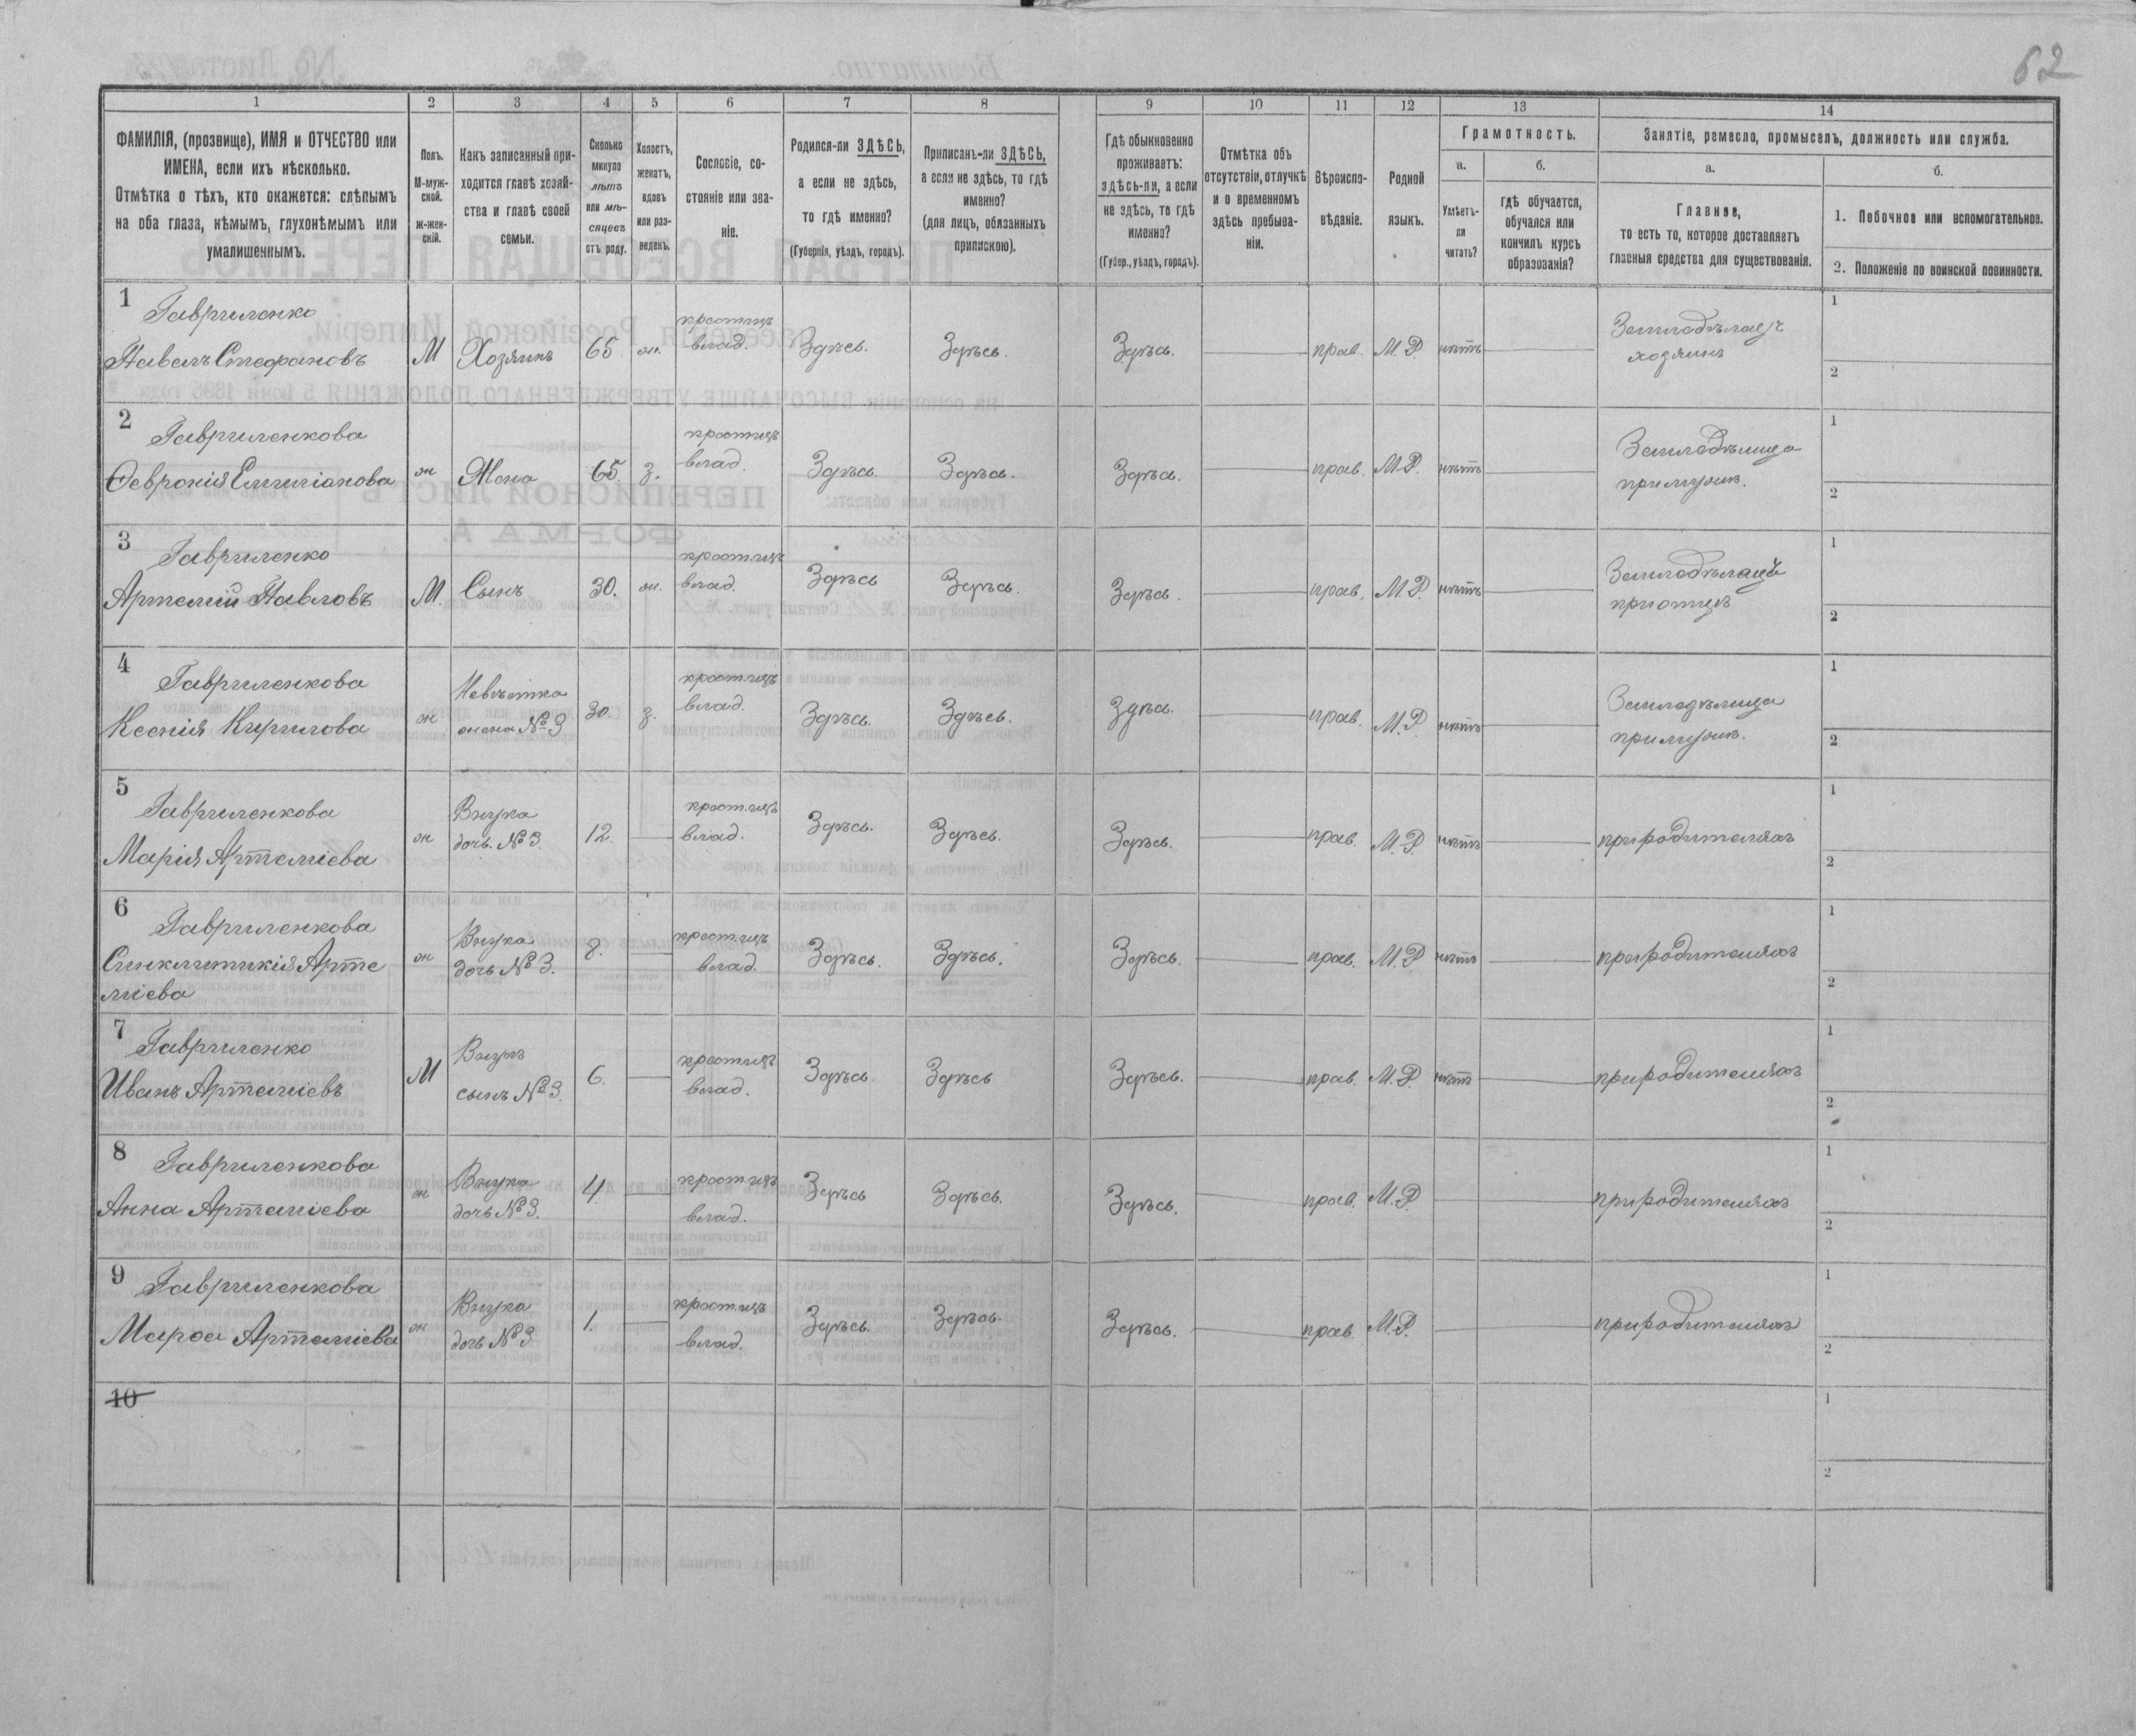 62
1 2 3 4 5 6 7 8 9 10 11 12 13 14
ФАМИЛІЯ, (прозвище), ИМЯ и ОТЧЕСТВО или
ИМЕНА, если ихъ нѣсколько.
Отмѣтка о тѣхъ, кто окажется: слѣпымъ
на оба глаза, нѣмымъ, глухонѣмымъ или
умалишеннымъ.
Полъ.
М-муж-
ской.
ж-жен-
скій.
Какъ записанный при-
ходится главѣ хозяй-
ства и главѣ своей
семьи.
Сколько
минуло
лѣтъ
или мѣ-
сяцевъ
отъ роду.
Холостъ,
женатъ,
вдовъ
или раз-
веденъ.
Сословіе, со-
стояніе или зва-
ніе.
Родился-ли ЗДѢСЬ,
а если не здѣсь,
то гдѣ именно?
(Губернія, уѣздъ, городъ).
Приписанъ-ли ЗДѢСЬ,
а если не здѣсь, то гдѣ
именно?
(для лицъ, обязанныхъ
припискою).
Гдѣ обыкновенно
проживаетъ:
здѣсь-ли, а если
не здѣсь, то гдѣ
именно?
(Губер., уѣздъ, городъ).
Отмѣтка объ
отсутствіи, отлучкѣ
и о временномъ
здѣсь пребыва-
ніи.
Вѣроиспо-
вѣданіе.
Родной
языкъ.
Грамотность.
а.
Умѣетъ-
ли
читать?
б.
гдѣ обучается,
обучался или
кончилъ курсъ
образованія?
Занятіе, ремесло, промыселъ, должность или служба.
а.
Главное,
то есть то, которое доставляетъ
главныя средства для существованія.
б.
1. Побочное или вспомогательное.
2. Положеніе по воинской повинности.
1 Гавриленко
Павелъ Стефановъ М Хозяинъ 65. жн. крест.изъ влад. Здѣсь. Здѣсь. Здѣсь. прав. М.Р. нѣтъ Земледѣлецъ хозяинъ 1 2
2 Гавриленкова
Февронія Емиліанова ж Жена 65. з. крест.изъ влад. Здѣсь. Здѣсь. Здѣсь. прав. М.Р. нѣтъ Земледѣлица при мужѣ. 1 2
3 Гавриленко
Артемій Павловъ М. Сынъ 30. жн. крест.изъ влад. Здѣсь Здѣсь. Здѣсь. прав. М.Р. нѣтъ Земледѣлецъ при отцѣ 1 2
4 Гавриленкова
Ксенія Кирилова ж Невѣстка жена №3 30. з. крест.изъ влад. Здѣсь. Здѣсь. Здѣсь. прав. М.Р. нѣтъ Земледѣлица при мужѣ. 1 2
5 Гавриленкова
Марія Артеміева ж Внучка дочь. №3. 12. крест.изъ влад. Здѣсь. Здѣсь. Здѣсь. прав. М.Р. нѣтъ при родителяхъ 1 2
6 Гавриленкова
Синклитикія Арте
міева ж Внучка дочь №3. 8. крест.изъ влад. Здѣсь. Здѣсь. Здѣсь. прав. М.Р. нѣтъ при родителяхъ 1 2
7 Гавриленко
Иванъ Артеміевъ М Внукъ сынъ №3. 6. крест.изъ влад. Здѣсь. Здѣсь Здѣсь. прав. М.Р. нѣтъ при родителяхъ 1 2
8 Гавриленкова
Анна Артеміева ж Внучка дочь №3. 4. крест.изъ влад. Здѣсь Здѣсь. Здѣсь. прав. М.Р. при родителяхъ 1 2
9 Гавриленкова
Артеміева ж Внучка дочь №3 1. крест.изъ влад. Здѣсь. Здѣсь. Здѣсь. прав. М.Р. при родителяхъ 1 2
10 1 2